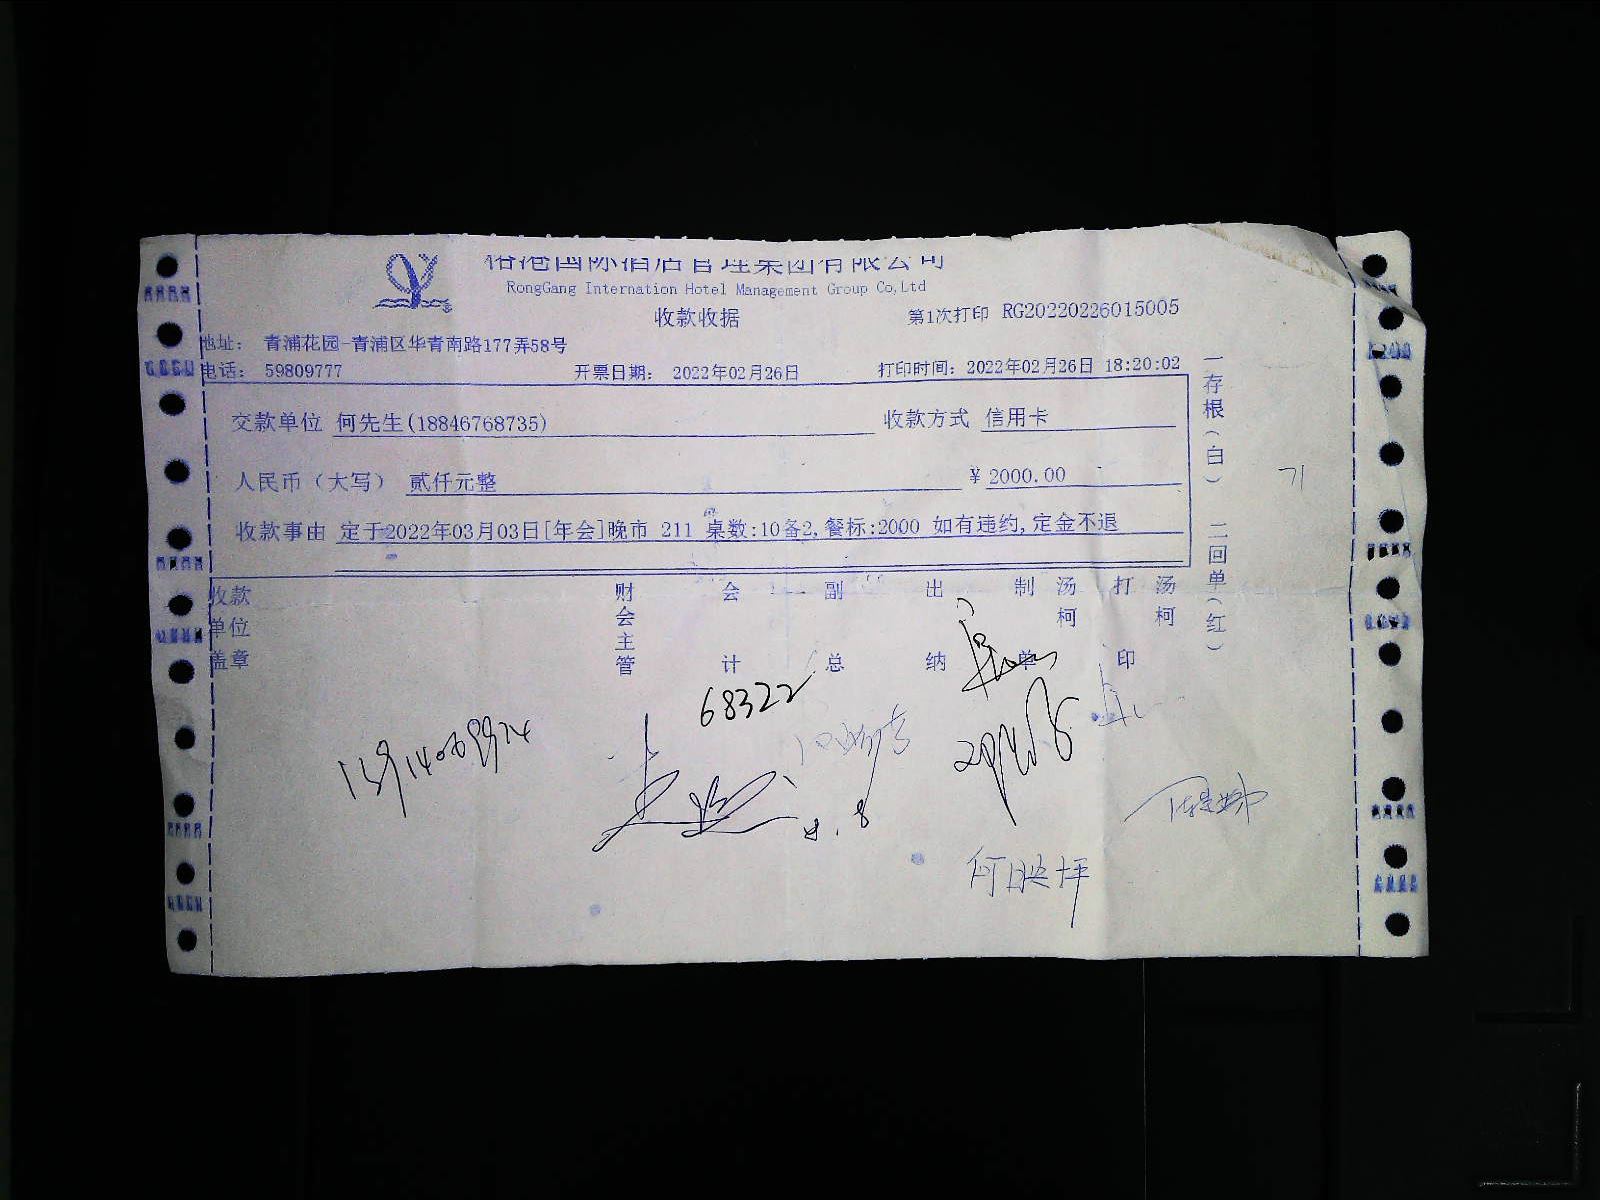 港国际酒店管理集团有限公司
RongGang Internation Hotel Management Group Co,Ltd
收款收据
第1次打印 RG20220226015005
地址： 青浦花园-青浦区华青南路177弄58号
电话： 59809777 开票日期： 2022年02月26日 打印时间：2022年02月26日 18:20:02
交款单位 何先生(18846768735) 收款方式 信用卡
人民币（大写） 贰仟元整 ￥2000.00
收款事由 定于2022年03月03日[年会]晚市 211 桌数:10备2,餐标:2000 如有违约,定金不退
一存根(白) 二回单(红)
收款单位盖章 财会主管 会计 副总 出纳 制单 汤柯 打印 汤柯
68322
何映坪